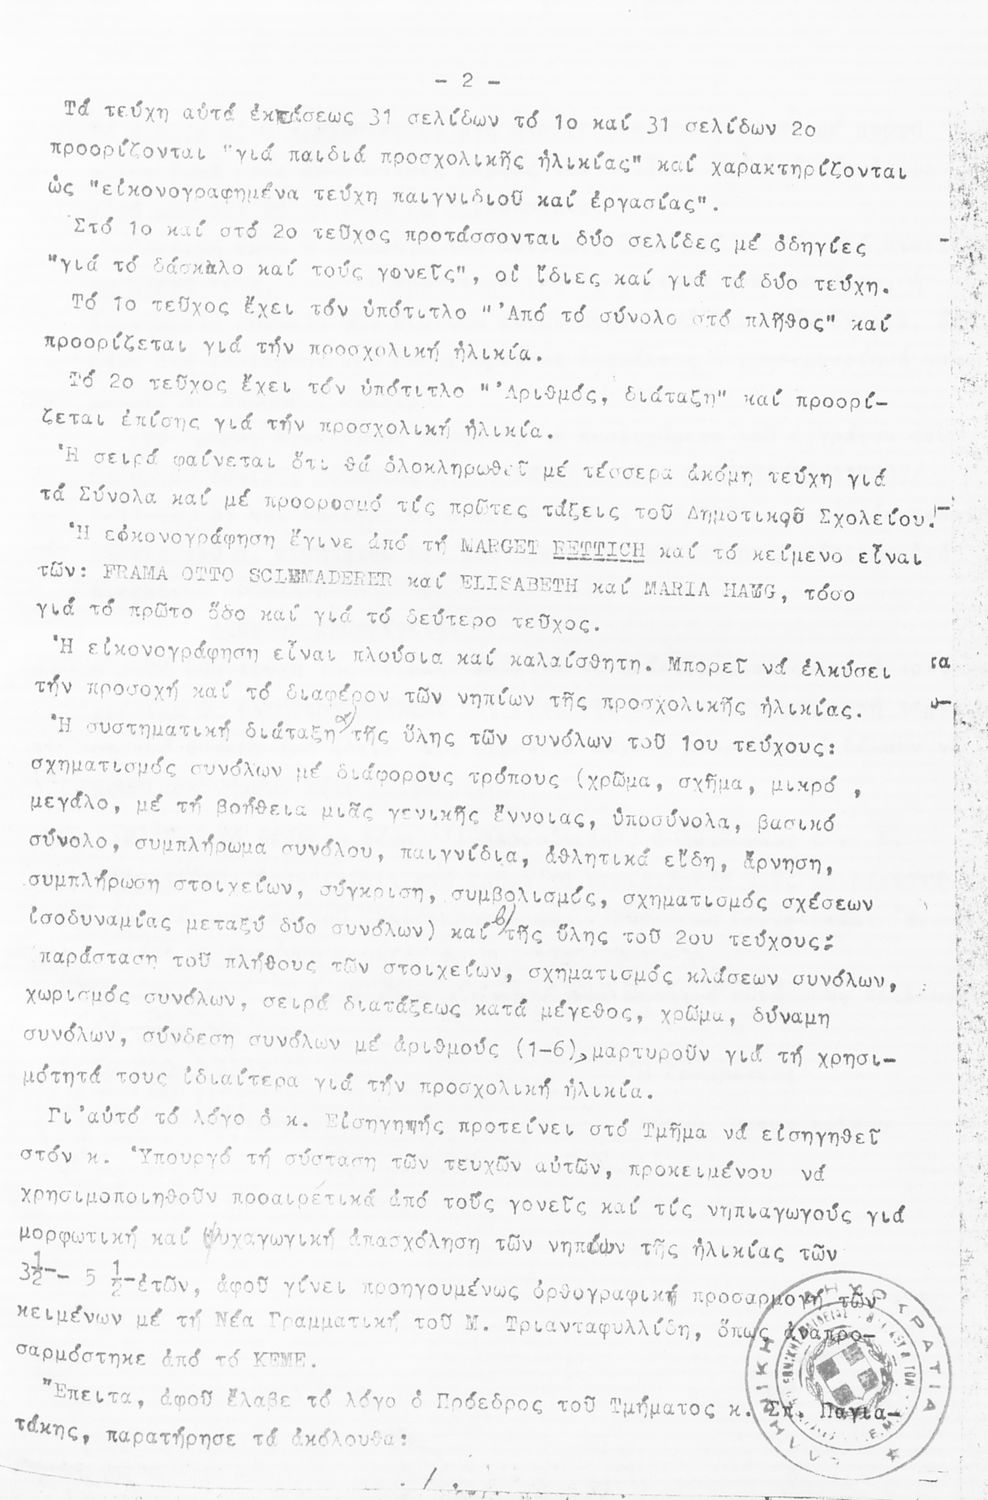 - 2 -
Τά τεύχη αὐτά ἐκτάσεως 31 σελίδων τό 1ο καί 31 σελίδων 2ο
προορίζονται "γιά παιδιά προσχολικῆς ἡλικίας" καί χαρακτηρίζονται
ὡς "εἰκονογραφημένα τεύχη παιγνιδιοῦ καί ἐργασίας".
Στό 1ο καί στό 2ο τεῦχος προτάσσονται δύο σελίδες μέ ὁδηγίες
"γιά τό δάσκαλο καί τούς γονεῖς", οἱ ἴδιες καί γιά τά δύο τεύχη.
Τό 1ο τεῦχος ἔχει τόν ὑπότιτλο "'Από τό σύνολο στό πλῆθος" καί
προορίζεται γιά τήν προσχολική ἡλικία.
Τό 2ο τεῦχος ἔχει τόν ὑπότιτλο "'Αριθμός, διάταξη" καί προορί-
ζεται ἐπίσης γιά τήν προσχολική ἡλικία.
'Η σειρά φαίνεται ὅτι θά ὁλοκληρωθεῖ μέ τέσσερα ἀκόμη τεύχη γιά
τά Σύνολα καί μέ προοροσμό τίς πρῶτες τάξεις τοῦ Δημοτικοῦ Σχολείου.
'Η εἰκονογράφηση ἔγινε ἀπό τή MARGET RETTICH καί τό κείμενο εἶναι
τῶν: FRAMA OTTO καί ELISABETH καί MARIA HAUG, τόσο
γιά τό πρῶτο ὅσο καί γιά τό δεύτερο τεῦχος.
'Η εἰκονογράφηση εἶναι πλούσια καί καλαίσθητη. Μπορεῖ νά ἑλκύσει
τήν προσοχή καί τό διαφέρον τῶν νηπίων τῆς προσχολικῆς ἡλικίας.
'Η συστηματική διάταξη α) τῆς ὕλης τῶν συνόλων τοῦ 1ου τεύχους:
σχηματισμός συνόλων μέ διάφορους τρόπους (χρῶμα, σχῆμα, μικρό ,
μεγάλο, μέ τή βοήθεια μιᾶς γενικῆς ἔννοιας, ὑποσύνολα, βασικό
σύνολο, συμπλήρωμα συνόλου, παιγνίδια, ἀθλητικά εἴδη, ἄρνηση,
συμπλήρωση στοιχείων, σύγκριση, συμβολισμός, σχηματισμός σχέσεων
ἰσοδυναμίας μεταξύ δύο συνόλων) καί β) τῆς ὕλης τοῦ 2ου τεύχους:
παράσταση τοῦ πλήθους τῶν στοιχείων, σχηματισμός κλάσεων συνόλων,
χωρισμός συνόλων, σειρά διατάξεως κατά μέγεθος, χρῶμα, δύναμη
συνόλων, σύνδεση συνόλων μέ ἀριθμούς (1-6), μαρτυροῦν γιά τή χρησι-
μότητά τους ἰδιαίτερα γιά τήν προσχολική ἡλικία.
Γι'αὐτό τό λόγο ὁ κ. Εἰσηγητής προτείνει στό Τμῆμα νά εἰσηγηθεῖ
στόν κ. 'Υπουργό τή σύσταση τῶν τευχῶν αὐτῶν, προκειμένου νά
χρησιμοποιηθοῦν προαιρετικά ἀπό τούς γονεῖς καί τίς νηπιαγωγούς γιά
μορφωτική καί ψυχαγωγική ἀπασχόληση τῶν νηπίων τῆς ἡλικίας τῶν
3 1/2 - 5 1/2 ἐτῶν, ἀφοῦ γίνει προηγουμένως ὀρθογραφική προσαρμογή τῶν
κειμένων μέ τή Νέα Γραμματική τοῦ Μ. Τριανταφυλλίδη, ὅπως ἀναπρο-
σαρμόστηκε ἀπό τό ΚΕΜΕ.
"Επειτα, ἀφοῦ ἔλαβε τό λόγο ὁ Πρόεδρος τοῦ Τμήματος κ. Σπ. Παγια-
τάκης, παρατήρησε τά ἀκόλουθα:
./.
ΕΛΛΗΝΙΚΗ ΔΗΜΟΚΡΑΤΙΑ